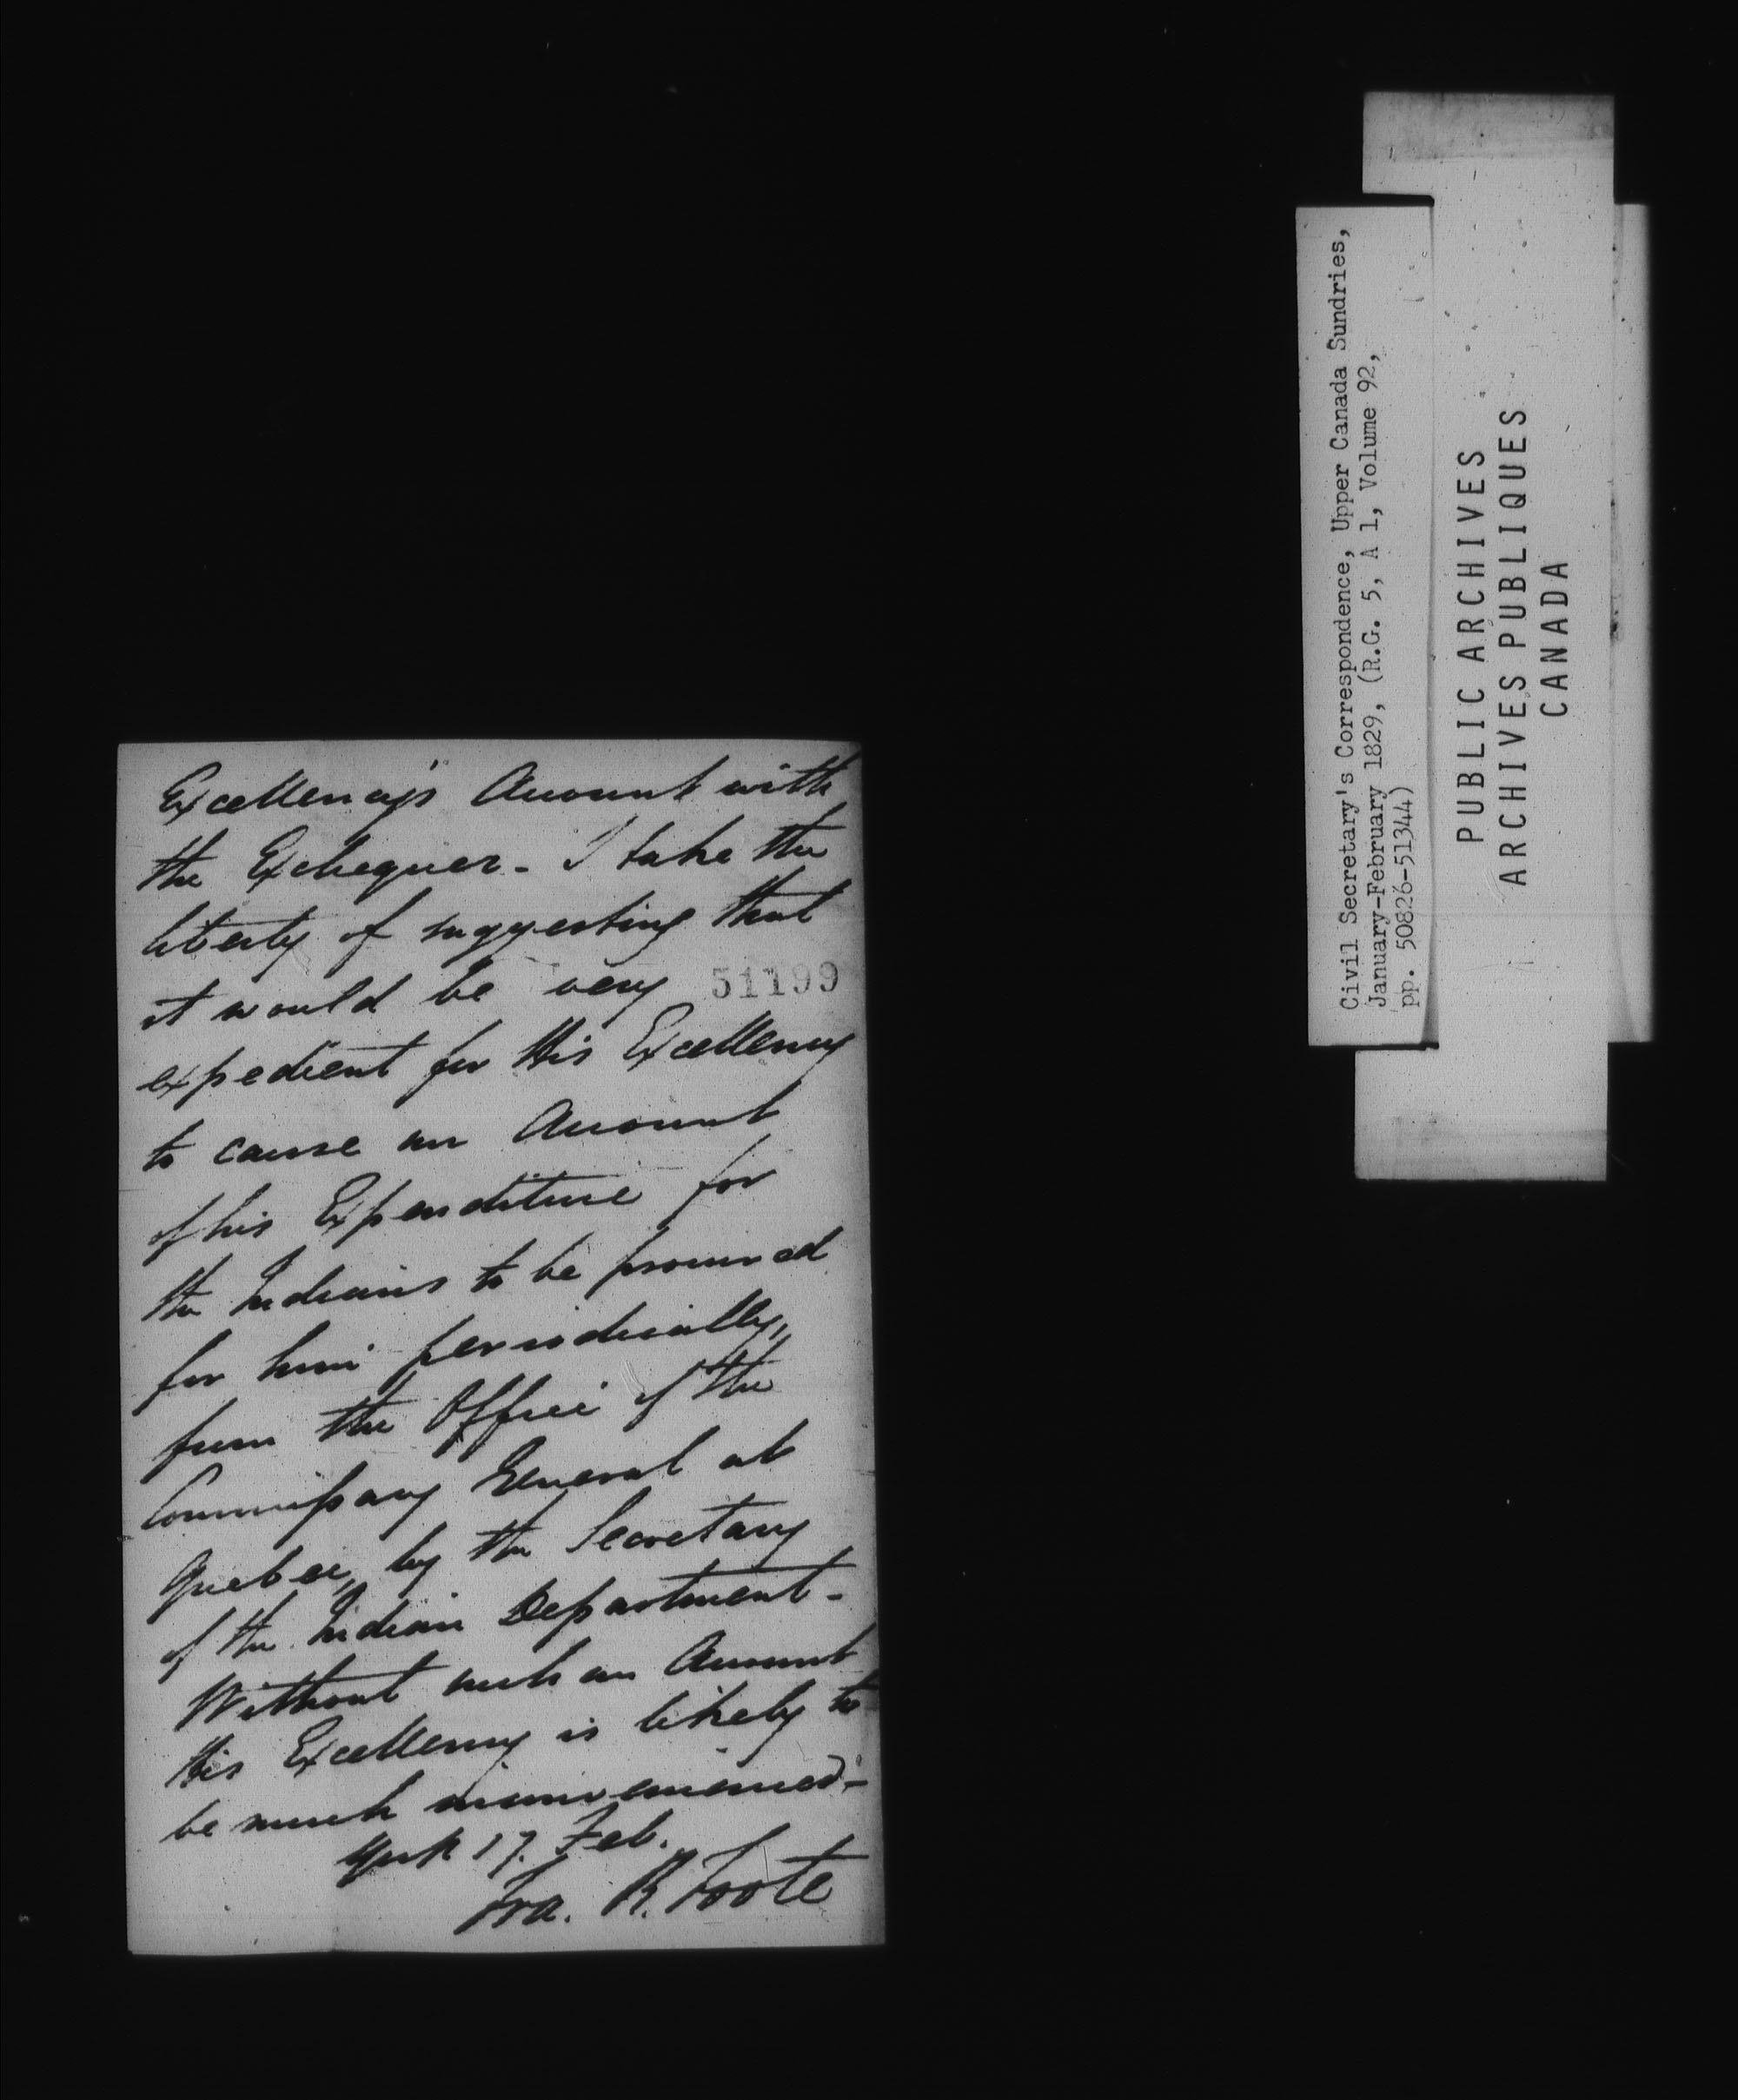 Excellency's Account with
the Exchequer - I take the
liberty of suggesting that
it would be very
51199
expedient for His Excellency
to cause an Account
of his Expenditure for
the Indians to be procured
for him periodically,
from the Office of the
Commissary General at
Quebec, by the Secretary
of the Indian Department -
Without such an Account
His Excellency is likely to
be much inconvenienced -
York 17. Feb.
Fra. R. Foote
Civil Secretary's Correspondence, Upper Canada Sundries,
January-February 1829, (R.G. 5, A 1, Volume 92,
pp. 50826-51344)
PUBLIC ARCHIVES
ARCHIVES PUBLIQUES
CANADA